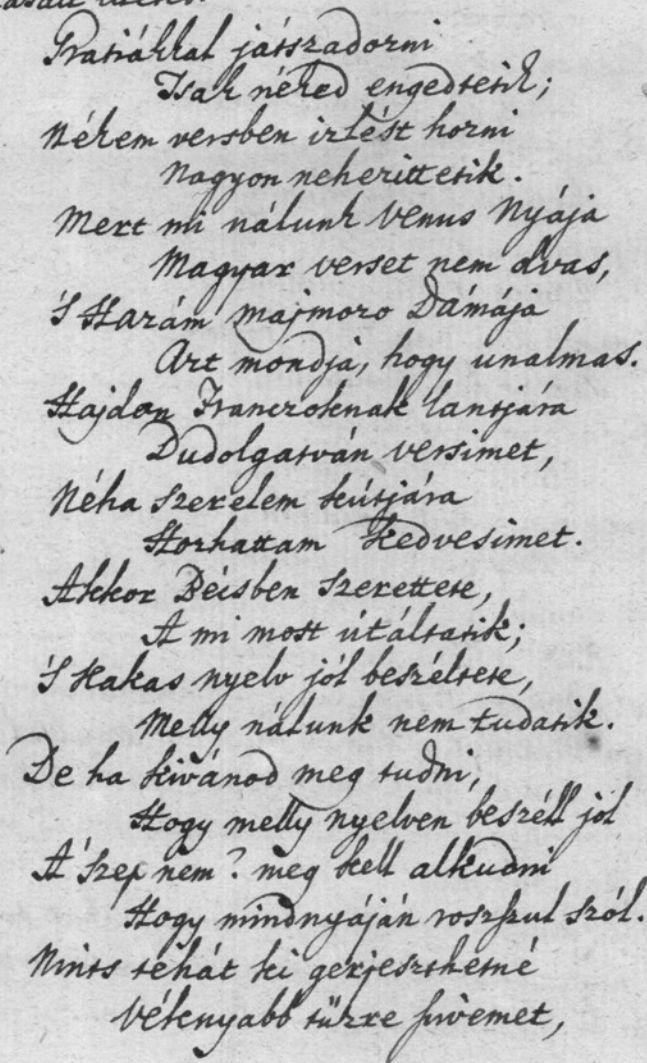 Gratiákkal játszadozni
Tsak néked engedtetik;
Nékem versben izlést hozni
Nagyon nehezittetik.
Mert mi nálunk Venus Nyája
Magyar verset nem olvas,
'S Hazám' majmozo Dámája
Azt mondja, hogy unalmas.
Hajdan Franczoknak lantjára
Dudolgatván versimet,
Néha szerelem kútjára
Hozhattam kedvesimet.
Akkor Bécsben szerettete,
A mi most útáltatik;
'S Kakas nyelv jól beszéltete,
Melly nálunk nem tudatik.
De ha kivánod meg tudni,
Hogy melly nyelven beszéll jól
A' szep nem? meg kell alkudni
Hogy mindnyáján roszszul szól.
Nints tehát ki gerjeszthetné
Vékenyabb tüzre szivemet,